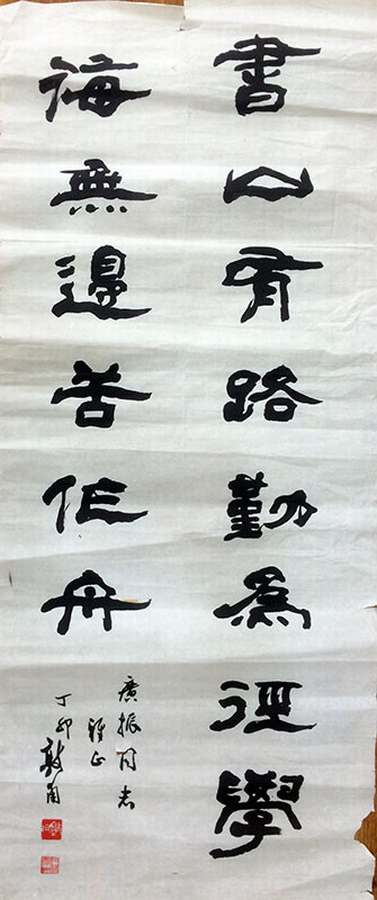 書山有路勤爲徑學
海無邊苦作舟
廣振同志
雅正
丁卯